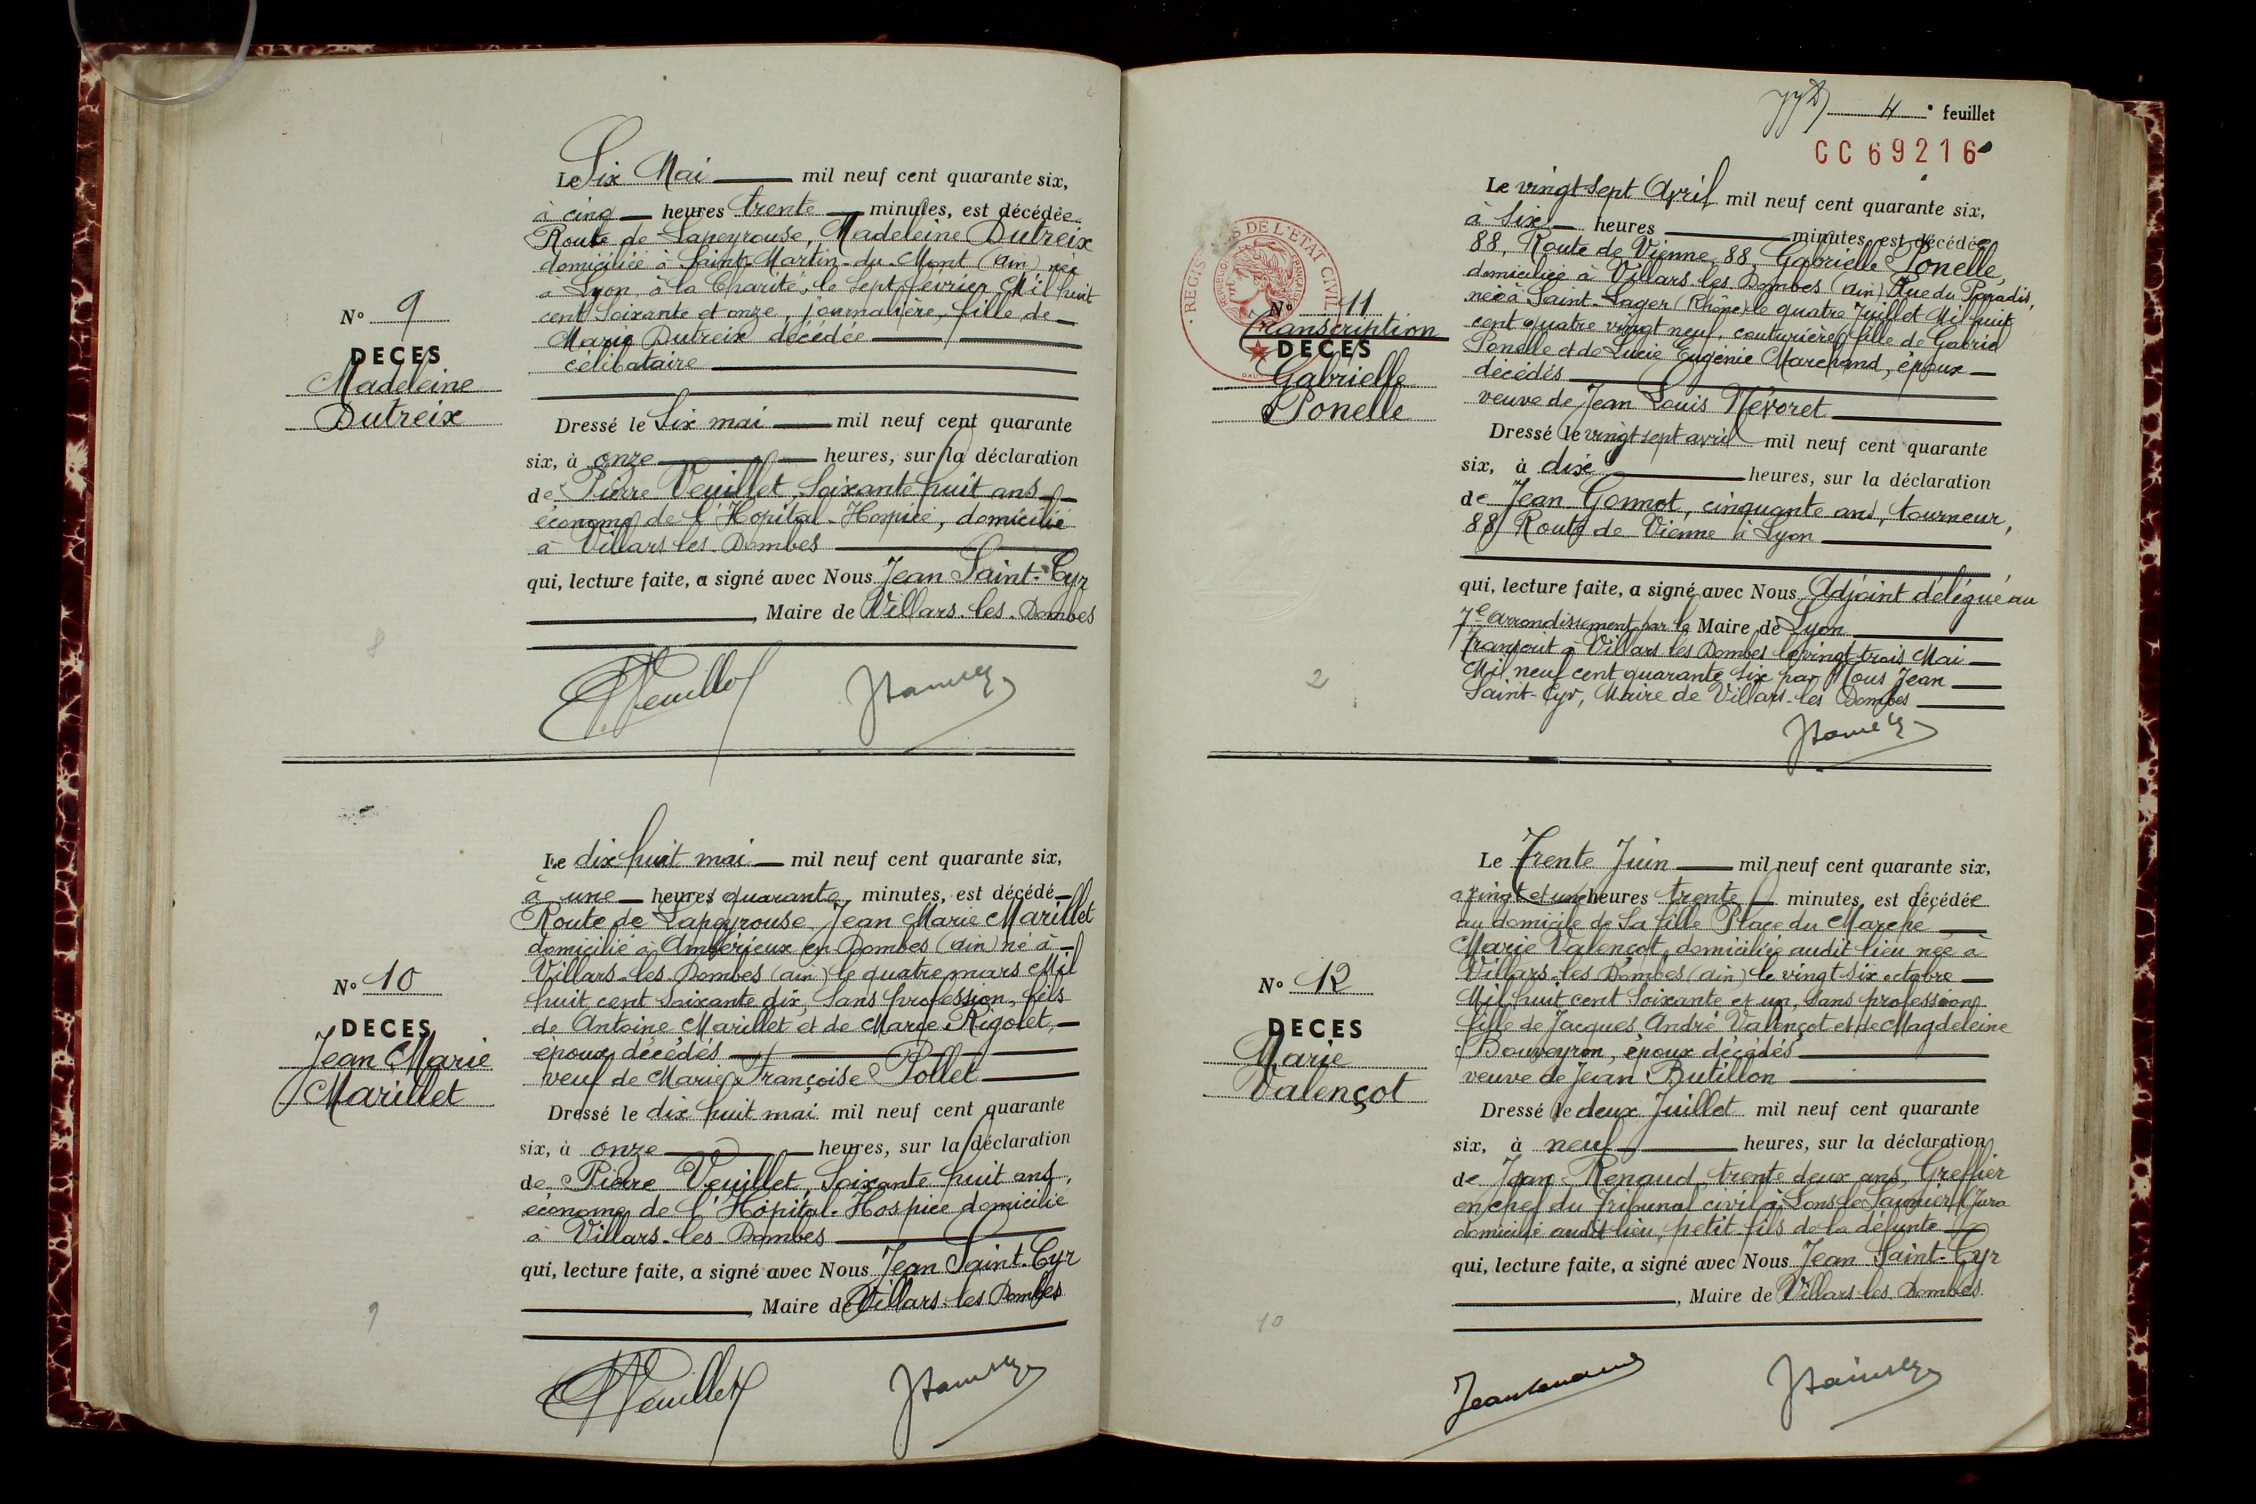 Le Six Mai mil neuf cent quarante six,
à cinq heures trente minutes, est décédée
Route de Lapeyrouse, Madeleine Dutreix
domiciliée à Saint-Martin-du-Mont (Ain) née
à Lyon, à la Charité, le sept février Mil huit
cent soixante et onze, journalière, fille de
Marie Dutreix décédée
célibataire
N° 9
DECES
Madeleine
Dutreix
Dressé le Six mai mil neuf cent quarante
six, à onze heures, sur la déclaration
de Pierre Veuillet, soixante huit ans
économe de l'Hopital-Hospice, domicilié
à Villars les Dombes
qui, lecture faite, a signé avec Nous Jean Saint-Cyr
, Maire de Villars-les-Dombes
8
Le dix huit mai mil neuf cent quarante six,
à une heures quarante minutes, est décédé
Route de Lapeyrouse Jean Marie Marillet
domicilié à Ambérieux en Dombes (Ain) né à
Villars-les-Dombes (ain) le quatre mars Mil
huit cent soixante dix, sans profession, fils
de Antoine Marillet et de Marie Rigolet,
époux décédés
veuf de Marie Françoise Pollet
N° 10
DECES
Jean Marie
Marillet
Dressé le dix huit mai mil neuf cent quarante
six, à onze heures, sur la déclaration
de Pierre Veuillet, Soixante huit ans,
économe de l'Hôpital-Hospice domicilié
à Villars-les-Dombes
qui, lecture faite, a signé avec Nous Jean Saint-Cyr
, Maire de Villars-les Dombes
9
4e feuillet
CC69216
Le vingt sept Avril mil neuf cent quarante six,
à six heures minutes, est décédée
88, Route de Vienne, 88, Gabrielle Ponelle,
domiciliée à Villars-les Dombes (Ain) Rue du Paradis,
née à Saint-Lager (Rhône) le quatre Juillet Mil huit
cent quatre vingt neuf, couturière, fille de Gabriel
Ponelle et de Lucie Eugénie Marchand, époux
décédés
veuve de Jean Louis Névoret
REGISTRES DE L'ETAT CIVIL
N° 11
Transcription
DECES
Gabrielle
Ponelle
Dressé le vingt sept avril mil neuf cent quarante
six, à dix heures, sur la déclaration
de Jean Gonnot, cinquante ans, tourneur,
88, Route de Vienne à Lyon
qui, lecture faite, a signé avec Nous Adjoint délégué au
7e arrondissement par le Maire de Lyon
Transcrit à Villars les Dombes le vingt trois Mai
Mil neuf cent quarante six par Nous Jean
Saint-Cyr, Maire de Villars-les Dombes
2
Le Trente Juin mil neuf cent quarante six,
à vingt et une heures trente minutes, est décédée
au domicile de sa fille Place du Marché
Marie Valençot, domiciliée audit lieu née à
Villars-les Dombes (Ain) le vingt six octobre
Mil huit cent soixante et un, sans profession
fille de Jacques André Valençot et de Magdeleine
Bouveyron, époux décédés
veuve de Jean Butillon
N° 12
DECES
Marie
Valençot
Dressé le deux Juillet mil neuf cent quarante
six, à neuf heures, sur la déclaration
de Jean Renaud, trente deux ans, Greffier
en chef du Tribunal civil à Lons le Saunier (Jura
domicilié audit lieu, petit fils de la défunte
qui, lecture faite, a signé avec Nous Jean Saint-Cyr
, Maire de Villars-les-Dombes
10